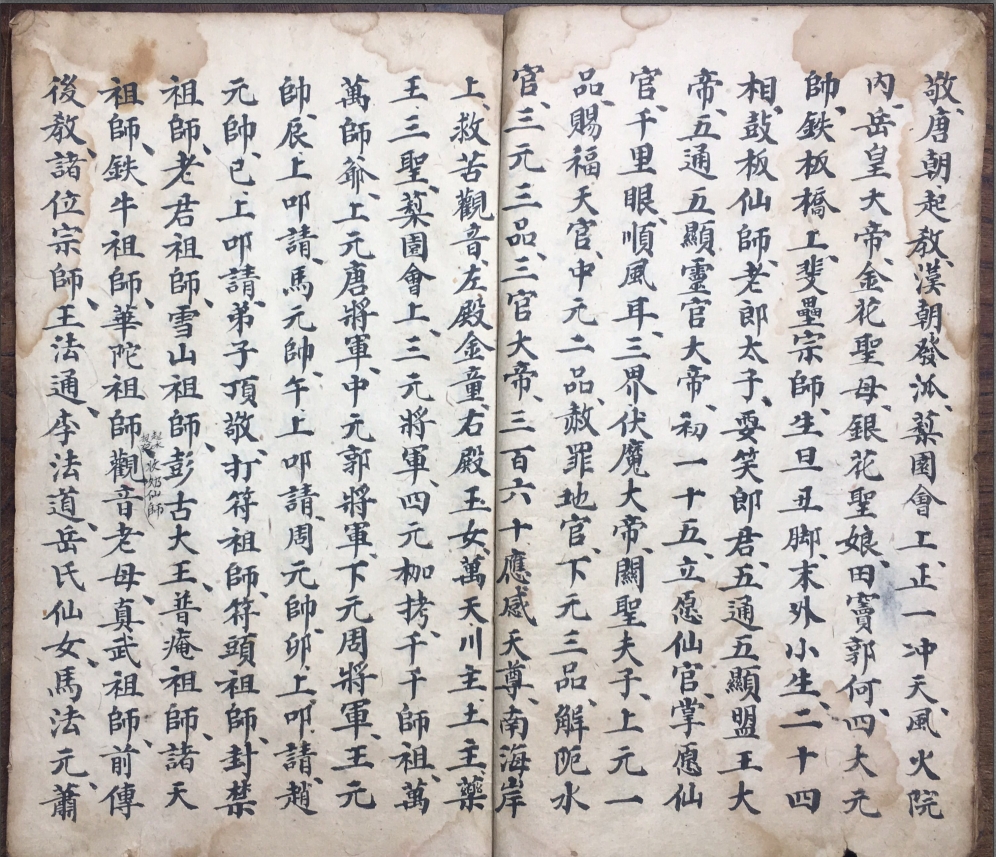 敬、唐朝起教漢朝發泒、蔂園會上、正一冲天風火院
內、岳皇大帝、金花聖母、銀花聖娘、田竇郭何四大元
帥、鉄板橋上、斐壘宗師、生旦丑脚、末外小生、二十四
相、鼓板仙師、老郎太子、耍笑郎君、五通五顯盟王大
帝、五通五顯靈官大帝、初一十五、立愿仙官、掌愿仙
官、千里眼、順風耳、三界伏魔大帝、關聖夫子、上元一
品、賜福天官、中元二品、赦罪地官、下元三品、解阨水
官、三元三品、三官大帝、三百六十應感天尊、南海岸
上、救苦觀音、左殿金童、右殿玉女、萬天川主、土主、藥
王、三聖、蔂園會上、三元將軍、四元枷拷、千千師祖、萬
萬師爺、上元唐將軍、中元郭將軍、下元周將軍、王元
帥、辰上叩請、馬元帥、午上叩請、周元帥、卯上叩請、趙
元帥、巳上叩請、弟子頂敬、打符祖師、符頭祖師、封禁
祖師、老君祖師、雪山祖師、彭古大王、普庵祖師、諸天
祖師、鉄牛祖師、華陀祖師、觀音老母、真武祖師、前傳
仙師
後教、諸位宗師、王法通、李法道、岳氏仙女、馬法元、蕭